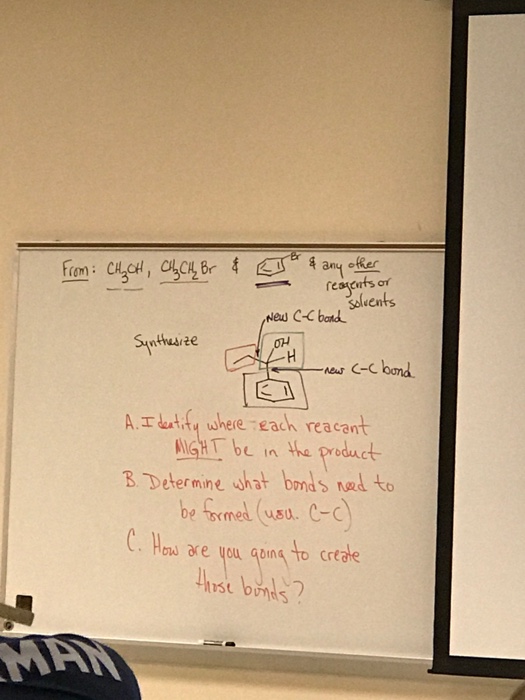 From: CH3OH, CH3CH2Br & Br & any other
reagents or
solvents
New C-C bond
Synthesize
OH
H
new C-C bond
A. Identify where each reacant
MIGHT be in the product
B. Determine what bonds need to
be formed (usu. C-C)
C. How are you going to create
those bonds?
MAN